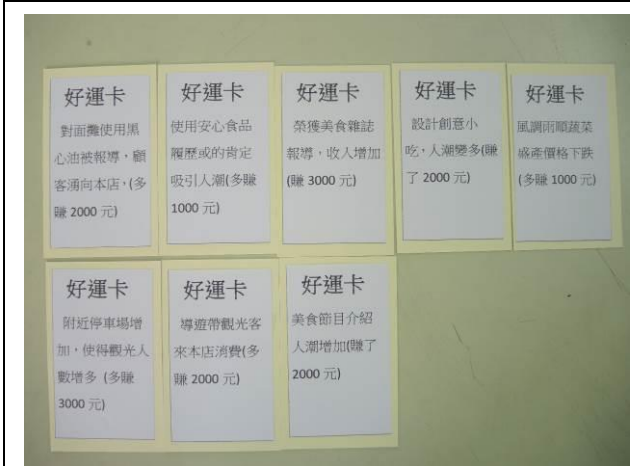 好運卡
對面攤使用黑
心油被報導，顧
客湧向本店，(多
賺 2000 元)
好運卡
使用安心食品
履歷或的肯定
吸引人潮(多賺
1000 元)
好運卡
榮獲美食雜誌
報導，收人增加
(賺 3000 元)
好運卡
設計創意小
吃，人潮變多(賺
了 2000 元)
好運卡
風調雨順蔬菜
盛產價格下跌
(多賺 1000 元)
好運卡
附近停車場增
加，使得觀光人
數增多 (多賺
3000 元)
好運卡
導遊帶觀光客
來本店消費(多
賺 2000 元)
好運卡
美食節目介紹
人潮增加(賺了
2000 元)